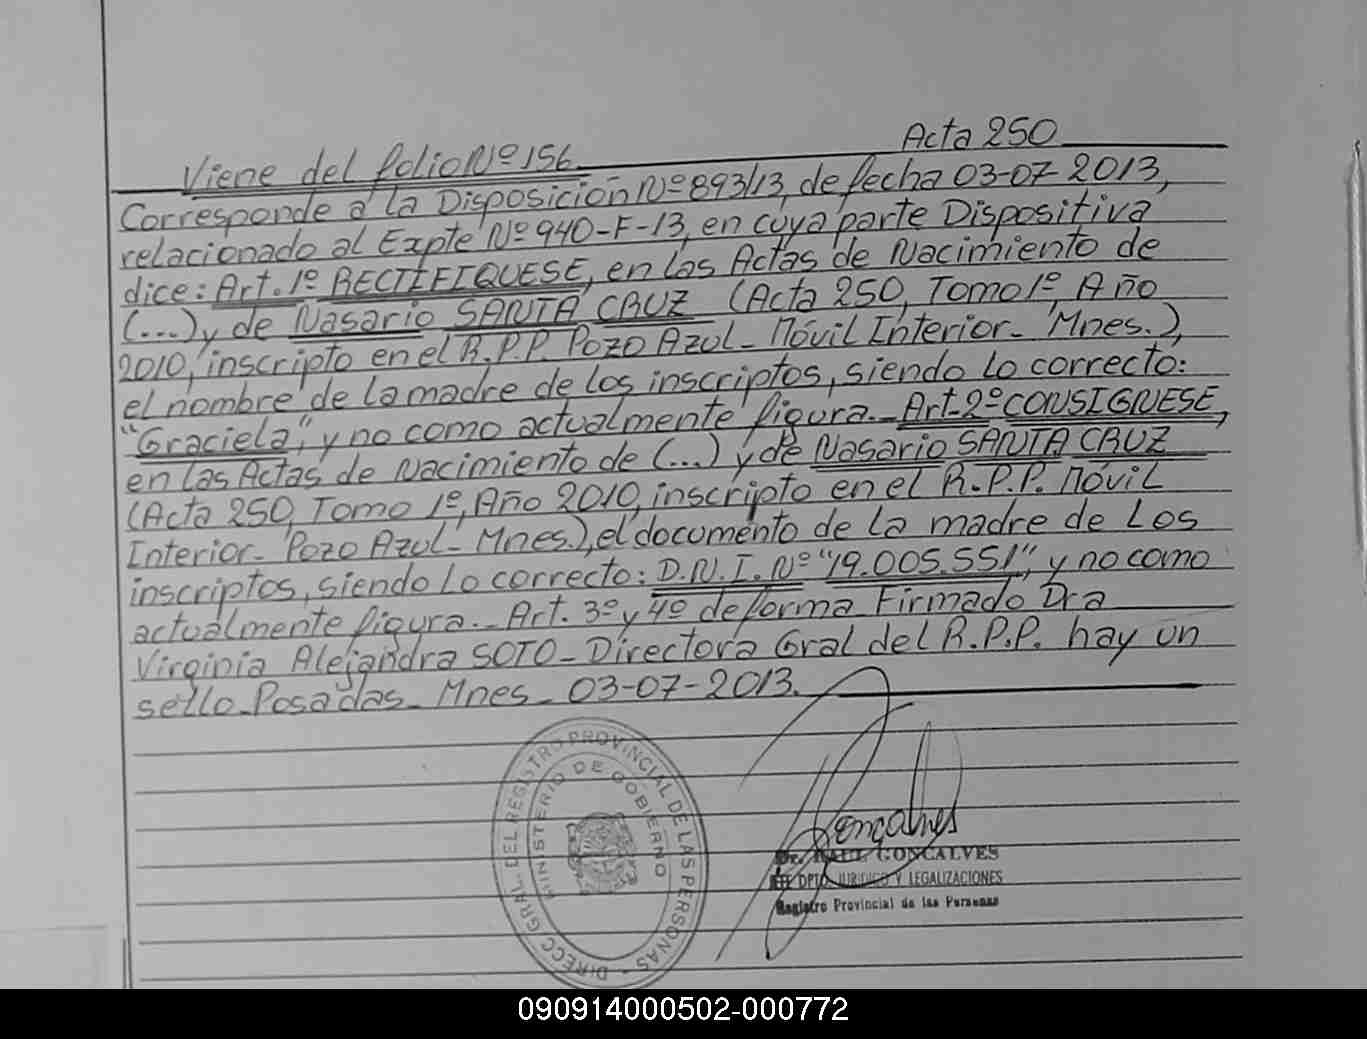 Acta 250
Viene del folio Nº 156
Corresponde a la Disposición Nº 893/13, de fecha 03-07-2013,
relacionado al Expte Nº 940-F-13, en cuya parte Dispositiva
dice: Art. 1º RECTIFIQUESE, en las Actas de Nacimiento de
(...) y de Nasario SANTA CRUZ (Acta 250, Tomo 1º, Año
2010, inscripto en el R.P.P. Pozo Azul - Móvil Interior - Mnes.),
el nombre de la madre de los inscriptos, siendo lo correcto:
"Graciela", y no como actualmente figura.- Art-2º CONSIGNESE,
en las Actas de Nacimiento de (...) y de Nasario SANTA CRUZ
(Acta 250, Tomo 1º, Año 2010, inscripto en el R.P.P. Móvil
Interior - Pozo Azul - Mnes.), el documento de la madre de Los
inscriptos, siendo lo correcto: D.N.I. Nº "19.005.551", y no como
actualmente figura.- Art. 3º y 4º de forma Firmado Dra
Virginia Alejandra SOTO - Directora Gral del R.P.P. hay un
sello Posadas - Mnes - 03-07-2013.
DIRECC. GRAL. DEL REGISTRO PROVINCIAL DE LAS PERSONAS -
MINISTERIO DE GOBIERNO
Goncalves
Dr. RAUL GONCALVES
JEFE DPTO. JURIDICO Y LEGALIZACIONES
Registro Provincial de las Personas
090914000502-000772